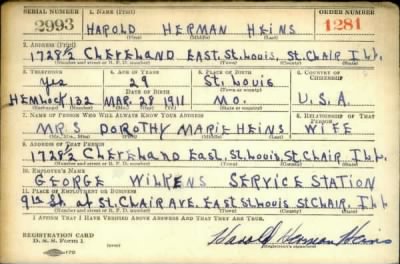 SERIAL NUMBER 1. NAME (Print) ORDER NUMBER
2993 HAROLD HERMAN HEINS 1281
(First) (Middle) (Last)
2. ADDRESS (Print)
1728½ CLEVELAND EAST. ST. LOUIS, ST. CLAIR ILL.
(Number and street or R. F. D. number) (Town) (County) (State)
3. TELEPHONE 4. AGE IN YEARS 5. PLACE OF BIRTH 6. COUNTRY OF CITIZENSHIP
Yes 29 St. Louis
HEMLOCK 132 MAR. 28 1911 MO. U.S.A.
7. NAME OF PERSON WHO WILL ALWAYS KNOW YOUR ADDRESS 8. RELATIONSHIP OF THAT PERSON
MRS DOROTHY MARIE HEINS WIFE
(Mr., Mrs., Miss) (First) (Middle) (Last)
9. ADDRESS OF THAT PERSON
1728½ CLEVELAND East. St. Louis, St CLAIR ILL.
(Number and street or R. F. D. number) (Town) (County) (State)
10. EMPLOYER'S NAME
GEORGE WILKENS SERVICE STATION
11. PLACE OF EMPLOYMENT OR BUSINESS
9th St. at ST. CLAIR AVE. EAST ST LOUIS ST CLAIR. ILL
(Number and street or R. F. D. number) (Town) (County) (State)
I AFFIRM THAT I HAVE VERIFIED ABOVE ANSWERS AND THAT THEY ARE TRUE.
REGISTRATION CARD
D. S. S. Form 1 Harold Herman Heins
(Registrant's signature)